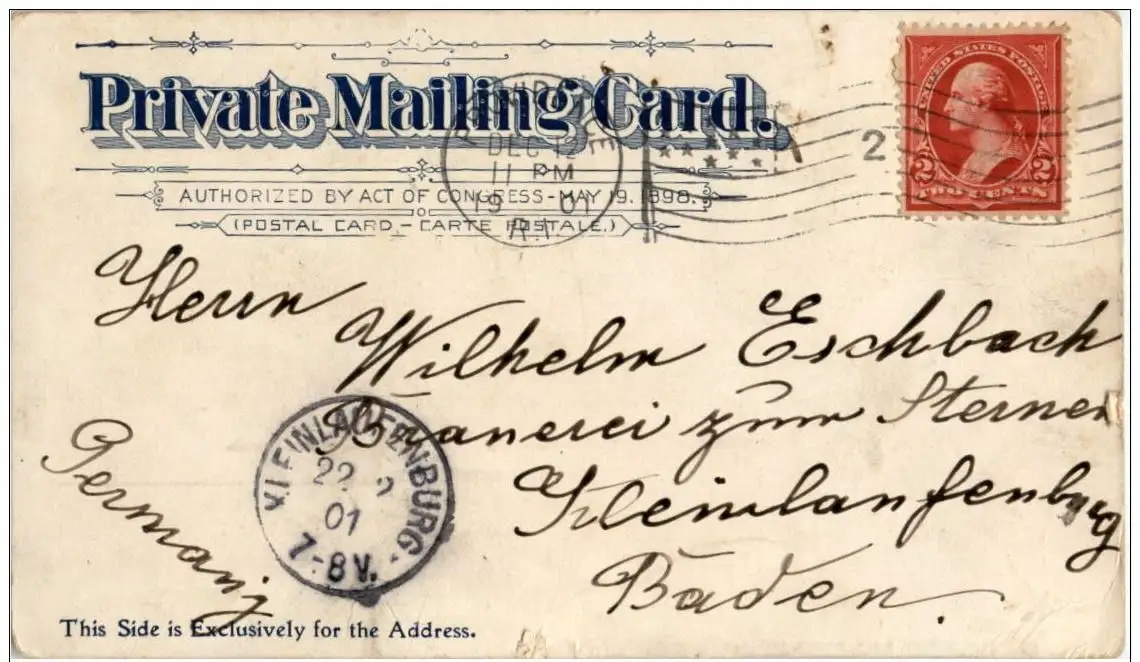 Private Mailing Card.
AUTHORIZED BY ACT OF CONGRESS - MAY 19. 1898.
(POSTAL CARD - CARTE POSTALE.)
DEC 12
11 PM
01
R.I.
2
UNITED STATES POSTAGE
2 2
TWO CENTS
Herrn
Wilhelm Eschbach
Brauerei zum Sternen
Kleinlaufenburg
Baden.
Germany
KLEINLAUFENBURG
22
01
7-8 V.
This Side is Exclusively for the Address.